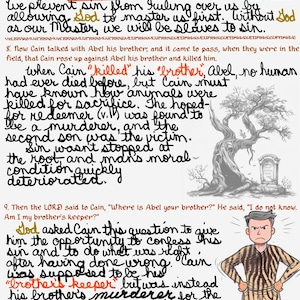 We prevent sin from ruling over us by
allowing God to master us first. Without God
as our Master, we will be slaves to sin.
8. Now Cain talked with Abel his brother; and it came to pass, when they were in the
field, that Cain rose up against Abel his brother and killed him.
When Cain "killed" his "brother," Abel, no human
had ever died before, but Cain must
have known how animals were
killed for sacrifice. The hoped-
for redeemer (v.1) was found to
be a murderer, and the
second son was the victim.
Sin wasn't stopped at
the root, and man's moral
condition quickly
deteriorated.
9. Then the LORD said to Cain, "Where is Abel your brother?" He said, "I do not know.
Am I my brother's keeper?"
God asked Cain this question to give
him the opportunity to confess his
sin and to do what was right,
after having done wrong. Cain
was supposed to be his
"brother's keeper," but was instead
his brother's murderer, for the